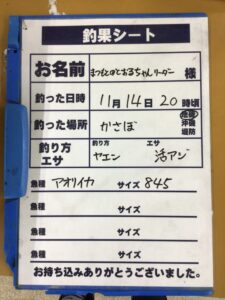 釣果シート
お名前 まつもとのとおるちゃんリーダー 様
釣った日時 11月14日20時頃
釣った場所 かさぼ 地磯 沖磯 堤防
釣り方 エサ 釣り方 ヤエン エサ 活アジ
魚種 アオリイカ サイズ 845
魚種 サイズ
魚種 サイズ
お持ち込みありがとうございました。